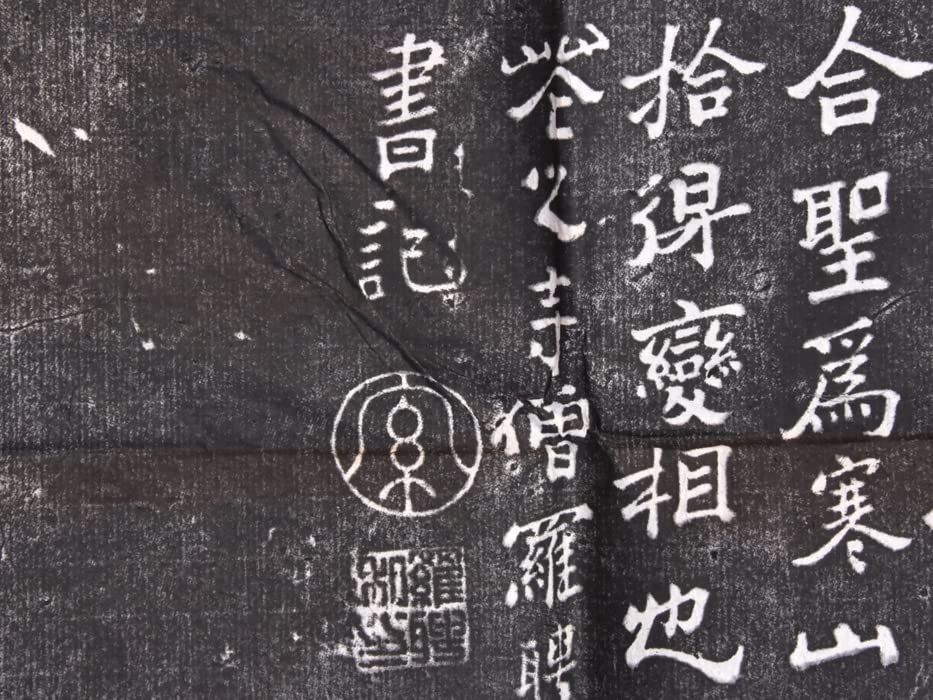 合聖爲寒山
拾得變相也
花之寺僧羅聘
書記
羅聘
私印